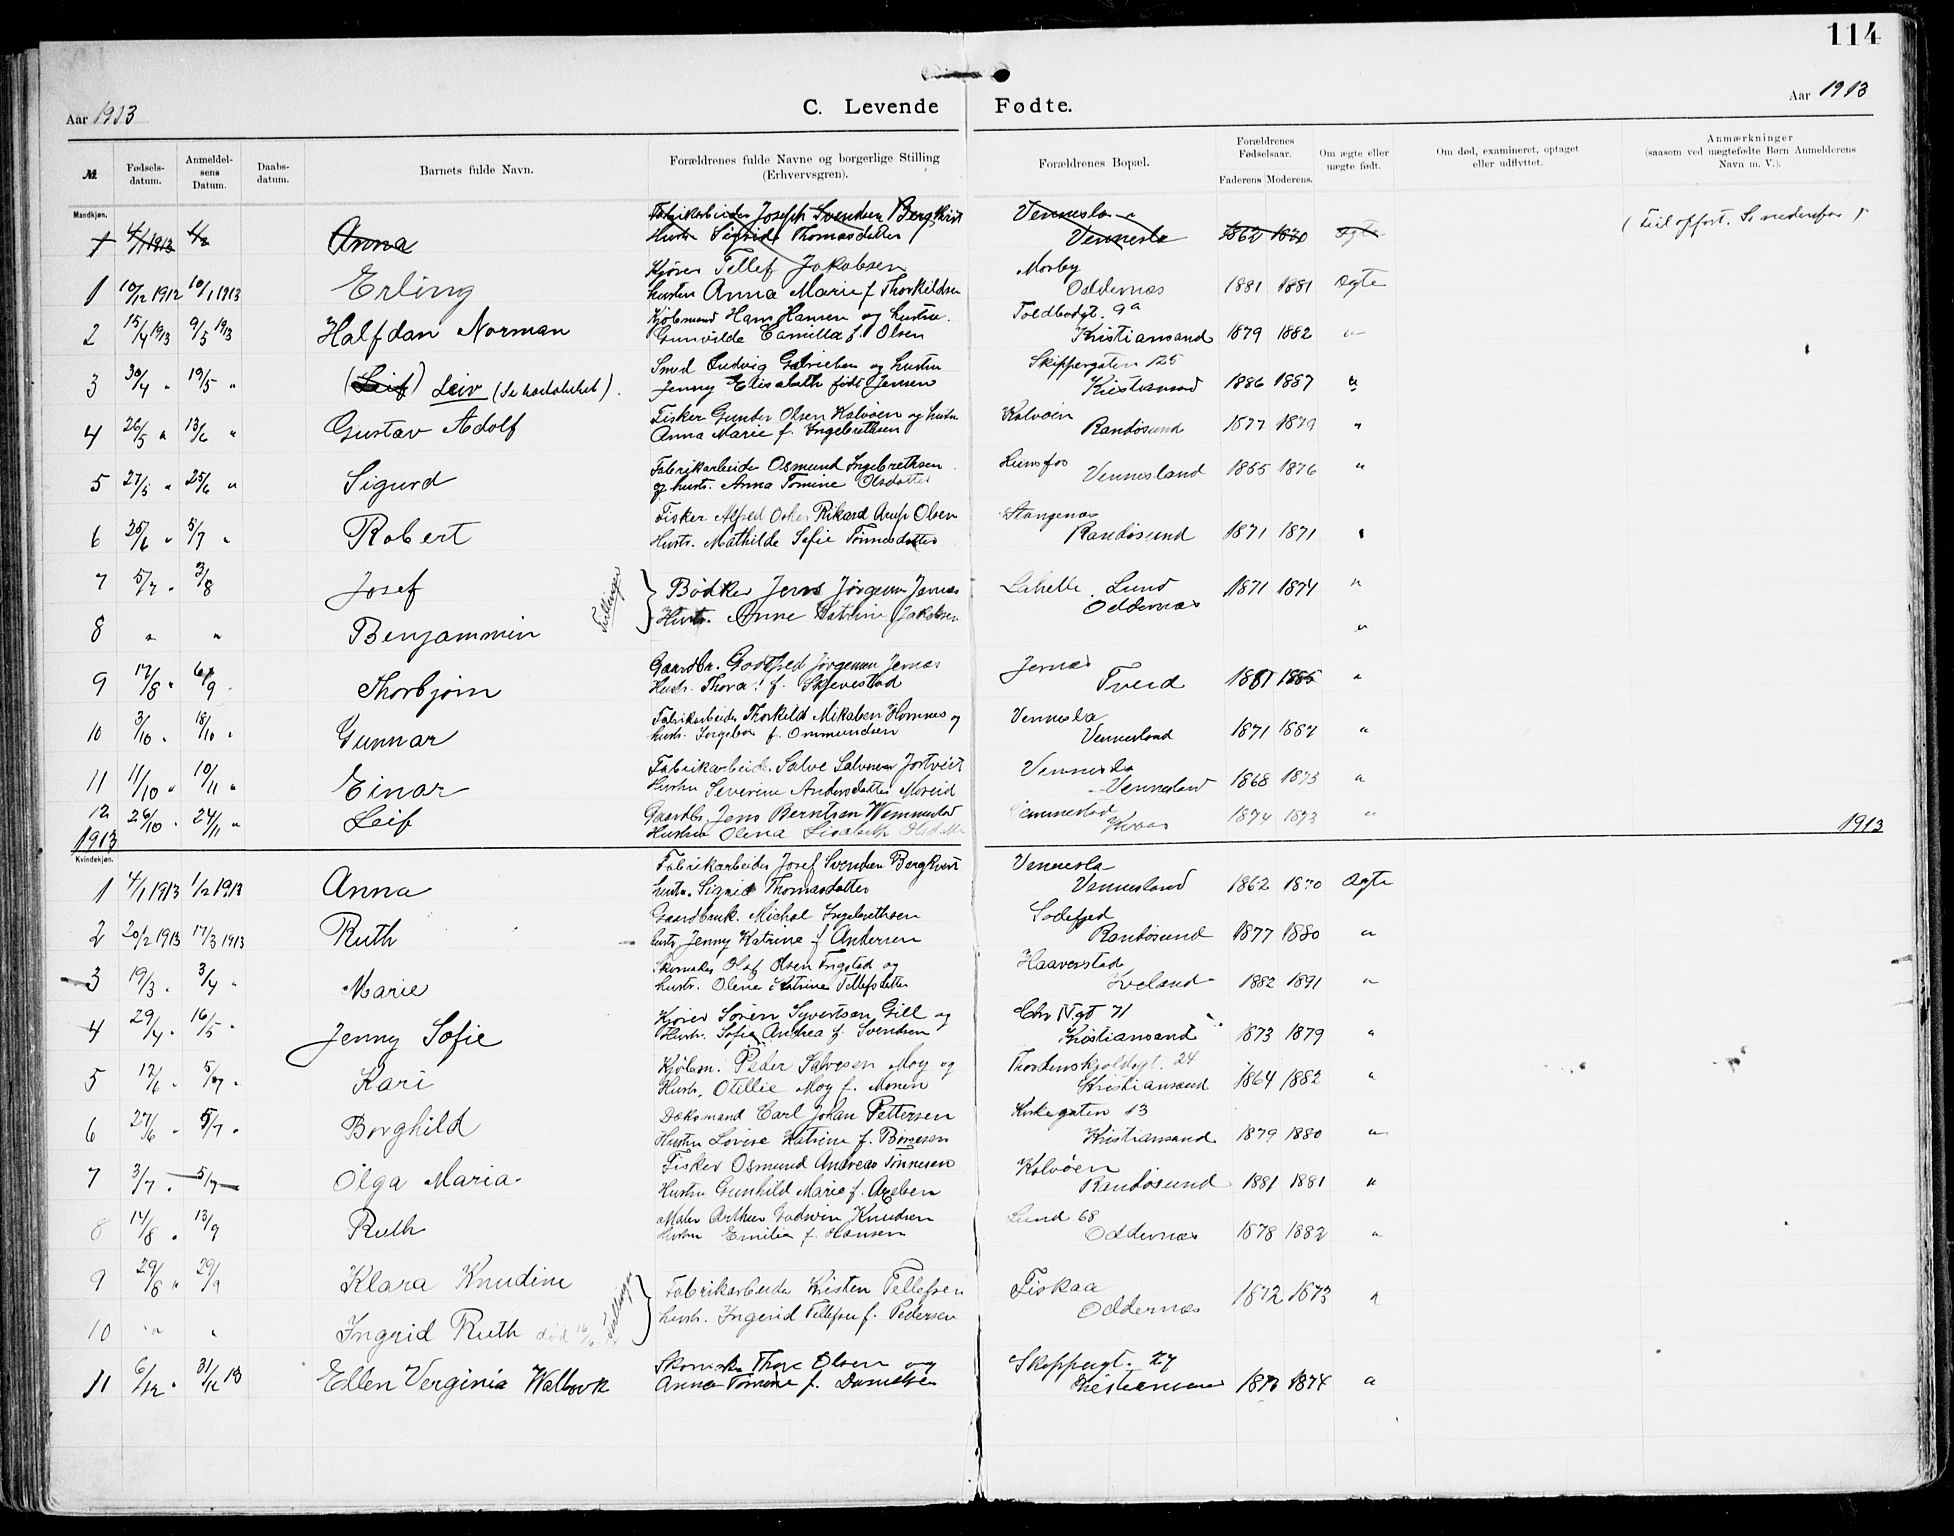 114
Aar 1913 C. Levende Fødte. Aar 1913
№ Fødselsdatum. Anmeldelsens Datum. Daabsdatum. Barnets fulde Navn. Forældrenes fulde Navne og borgerlige Stilling (Erhvervsgren). Forældrenes Bopæl. Forældrenes Fødselsaar. Faderens Moderens. Om ægte eller uægte født. Om død, examineret, optaget eller udflyttet. Anmærkninger (saasom ved uægtefødte Børn Anmelderens Navn m. V.).
Mandkjøn.
Fabrikarbeider Joseph Svendsen Bergkvist Vennesla
1 4/1 1913 1/2 Anna Hustr Sigrid Thomasdatter Vennesla 1862 1870 Ægte
Kjører Tellef Jakobsen Mosby
1 10/12 1912 10/1 1913 Erling hustru Anna Marie f. Thorkildsen Oddernæs 1881 1881 Ægte
Kjøbmand Hans Hansen og hustru. Toldbodgt. 9a
2 15/4 1913 9/5 1913 Halfdan Norman Gunvilde Camilla f. Olsen Kristiansand 1879 1882 "
Smed Ludvig Gabrielsen og hustru Skippergaten 125
3 30/4 " 19/5 " (Leif) Leiv Jenny Elisabeth født Jensen Kristiansand 1886 1887 "
Fisker Gunder Olsen Kalvøen og hustru Kalvøen
4 26/5 " 13/6 " Gustav Adolf Anna Marie f. Ingebrethsen Randøsund 1877 1879 "
Fabrikarbeider Osmund Ingebrethsen Hunsfos
5 27/5 " 25/6 " Sigurd og hustr. Anna Tomine Olsdatter Vennesland 1855 1876 "
Fisker Alfred Oskar Rikard Arup Olsen Stangenæs
6 25/6 " 5/7 " Robert Hustr. Mathilde Sofie Tønnesdatter Randøsund 1871 1871 "
7 5/7 " 3/8 Josef Tvillinger Bødker Jens Jørgensen Jernæs Lahelle Lund 1871 1874 "
8 " " Benjammin Hustr. Anne Katrine Jakobsen Oddernæs "
Gaardbr. Godtfred Jørgensen Jernæs Jernæs
9 17/8 " 6/9 " Thorbjørn Hustr. Thora f. Skjevestad Tveid 1881 1885 "
Fabrikarbeider Thorkild Mikalsen Homnes og Vennesla
10 3/10 " 18/10 " Gunnar hustr. Ingeborg f. Ommundsen Vennesland 1871 1887 "
Fabrikarbeider Salve Salvesen Jortveit Vennesla
11 11/10 " 10/11 " Einar Hustru Severine Andersdatter Moseid Vennesland 1868 1873 "
Gaardbr. Jens Berntsen Wemmestad Vemmestad
12 26/10 " 24/11 " Leif Hustru Olena Lisabeth Olsdatter Kvaas 1874 1873 "
1913 1913
Kvindekjøn.
Fabrikarbeider Josef Svendsen Bergkvist Vennesla
1 4/1 1913 1/2 1913 Anna hustr. Sigrid Thomasdatter Vennesland 1862 1870 Ægte
Gaardbruk. Michal Ingebrethsen Sodefjed
2 20/2 1913 17/3 1913 Ruth hustr Jenny Katrine f Andersen Randøsund 1877 1880 "
Skomaker Olaf Olsen Frigstad og Haaverstad
3 19/3 " 3/4 " Marie hustr. Olene Katrine Tellefsdatter Iveland 1882 1891 "
Kjører Søren Syvertsen Gill og Chr IV.gt 71
4 29/4 " 16/5 " Jenny Sofie Hustr. Sofie Andrea f. Svendsen Kristiansand 1873 1879 "
Kjøbm. Peder Salvesen Moy og Thordenskjoldsgt. 24
5 12/6 " 5/7 " Kari Hustr. Otellie Moy f. Monen Kristiansand 1864 1882 "
Dæksmand Carl Johan Pettersen Kirkegaten 13
6 27/6 " 5/7 " Borghild Hustru Lovise Katrine f. Børresen Kristiansand 1879 1880 "
Fisker Osmund Andreas Tønnesen Kalvøen
7 3/7 " 5/7 Olga Maria Hustru Gunhild Marie f. Axelsen Randøsund 1881 1881 "
Maler Arthur Ludwin Knudsen Lund 68
8 14/8 " 13/9 Ruth Hustru Emilie f. Hansen Oddernæs 1878 1882 "
9 29/8 " 29/9 Klara Knudine Tvillinger Fabrikarbeider Kristen Tellefsen Fiskaa 1872 1873 "
10 " " Ingrid Ruth død hustr. Ingerid Tellefsen f. Pedersen Oddernæs
Skomak. Thore Olsen og Skippergt. 27
11 6/12 " 31/12 13 Ellen Verginia Wallovk Anna Tomine f. Danielsen Kristiansand 1874 "